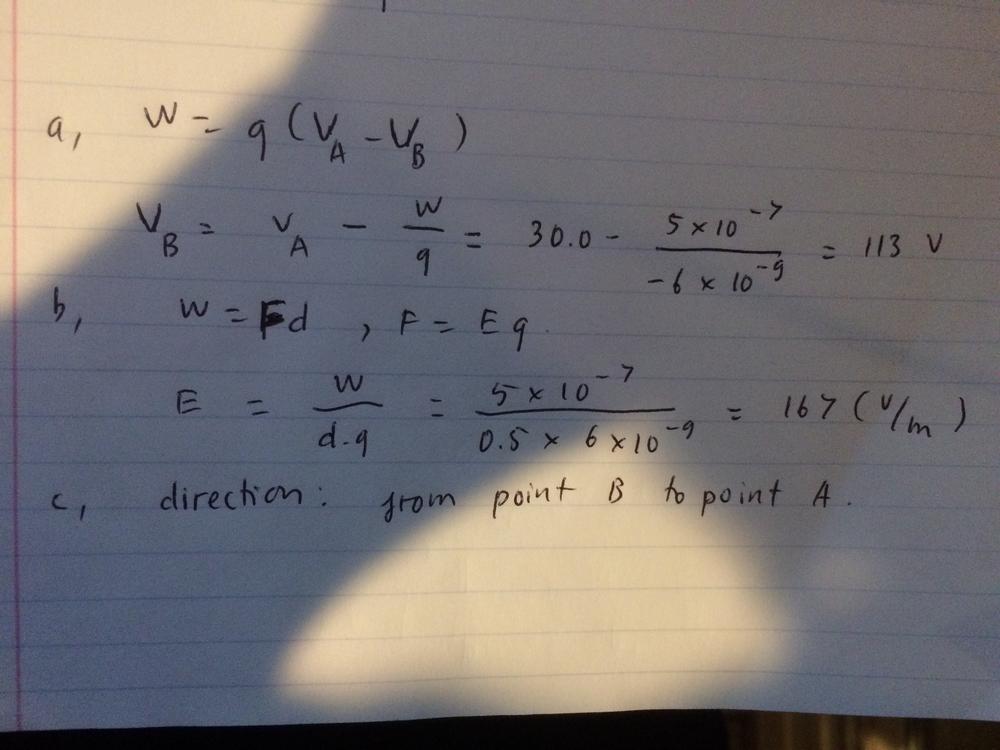 a, W = q (V_A - V_B)
V_B = V_A - W/q = 30.0 - (5 × 10^-7)/(-6 × 10^-9) = 113 V
b, W = Fd , F = Eq.
E = W/(d.q) = (5 × 10^-7)/(0.5 × 6 × 10^-9) = 167 (V/m)
c, direction: from point B to point A.